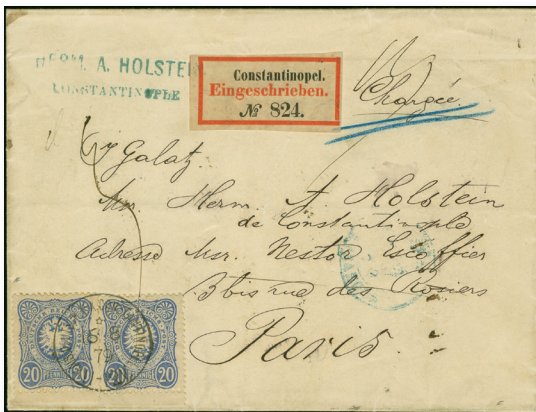 HERM. A. HOLSTEIN
CONSTANTINOPLE
Constantinopel.
Eingeschrieben.
№ 824.
Chargée
Galatz
Mr. Herm. A. Holstein
de Constantinople
Adresse Msr. Nestor Escoffier
3 bis rue des Rosiers
Paris
20 PFENNIG 20
20 PFENNIG 20
79